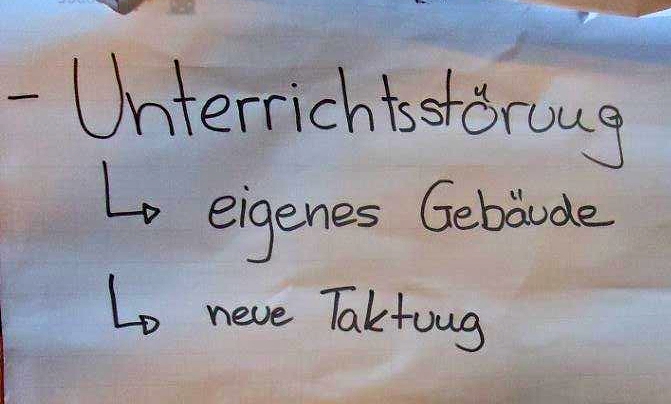 - Unterrichtsstörung
↳ eigenes Gebäude
↳ neue Taktung